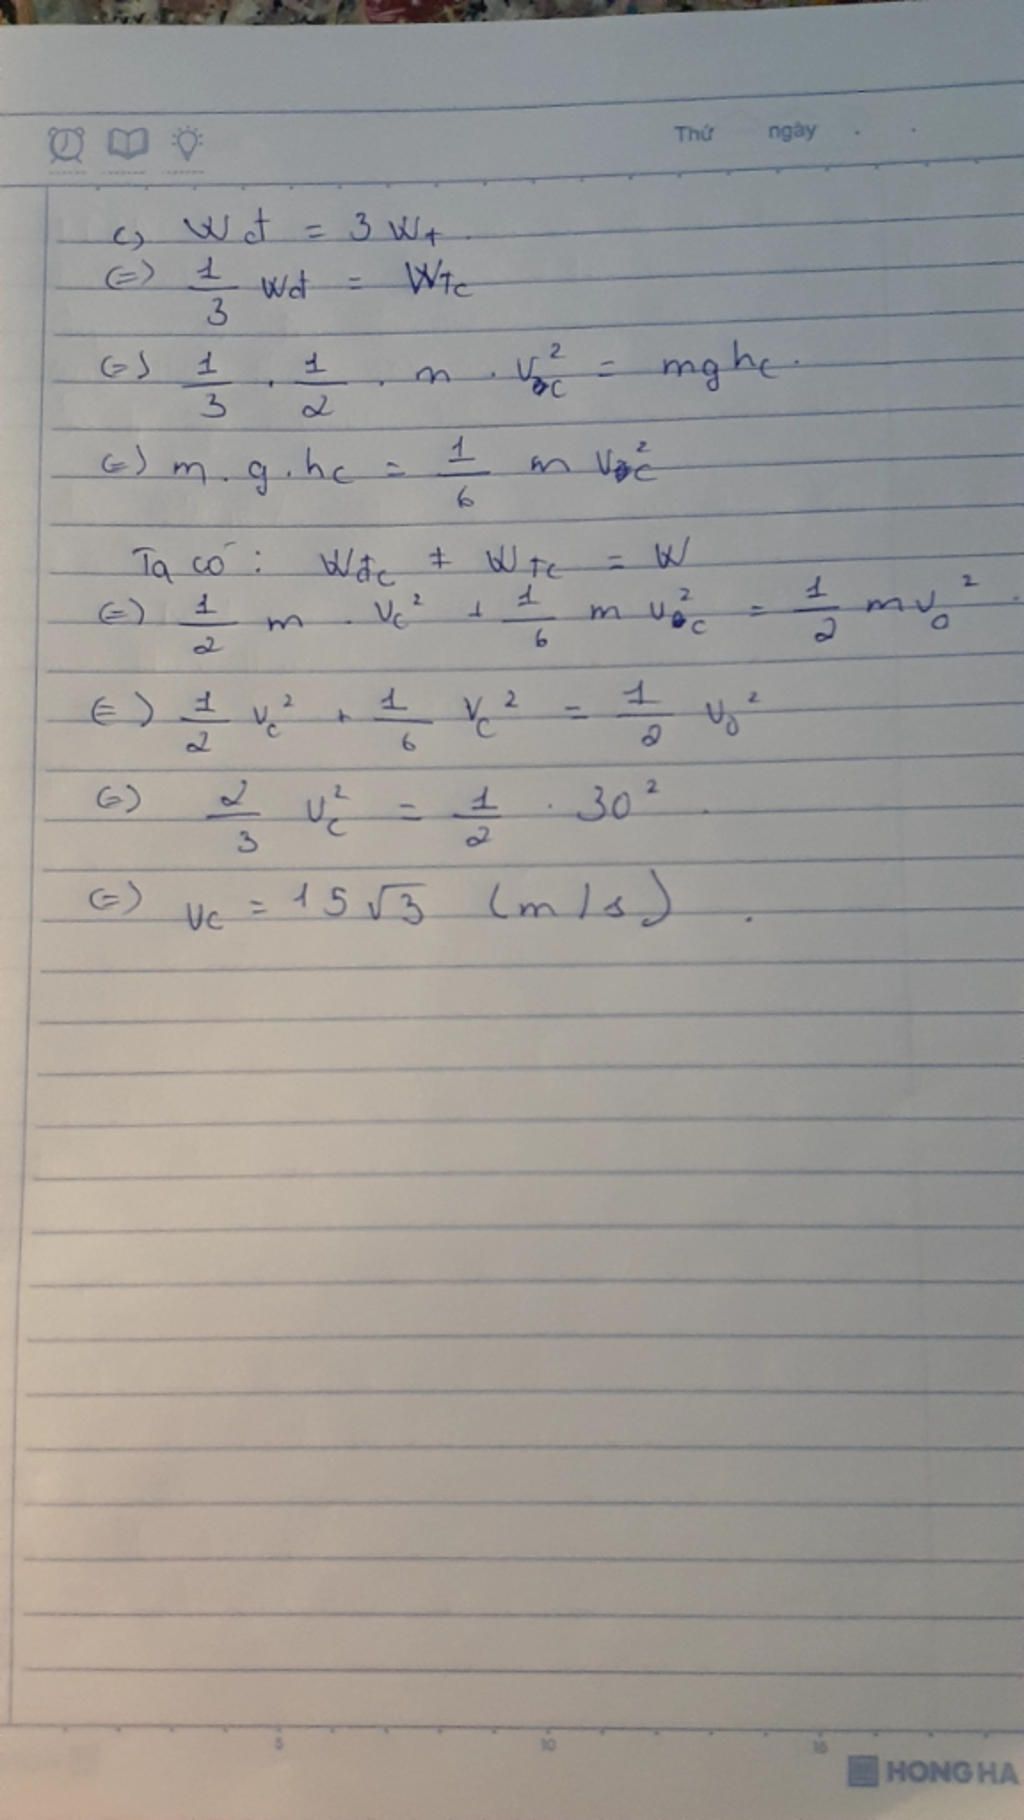 Thứ ngày . .
c, Wđ = 3 Wt
(=) 1/3 Wđ = Wtc
(=) 1/3 . 1/2 . m . vc² = mghc.
(=) m . g . hc = 1/6 m vc²
Ta có : Wđc + Wtc = W
(=) 1/2 m . vc² + 1/6 m vc² = 1/2 m v0² .
(=) 1/2 vc² + 1/6 vc² = 1/2 v0²
(=) 2/3 vc² = 1/2 . 30² .
(=) vc = 15√3 (m/s) .
5 10 15
HONG HA